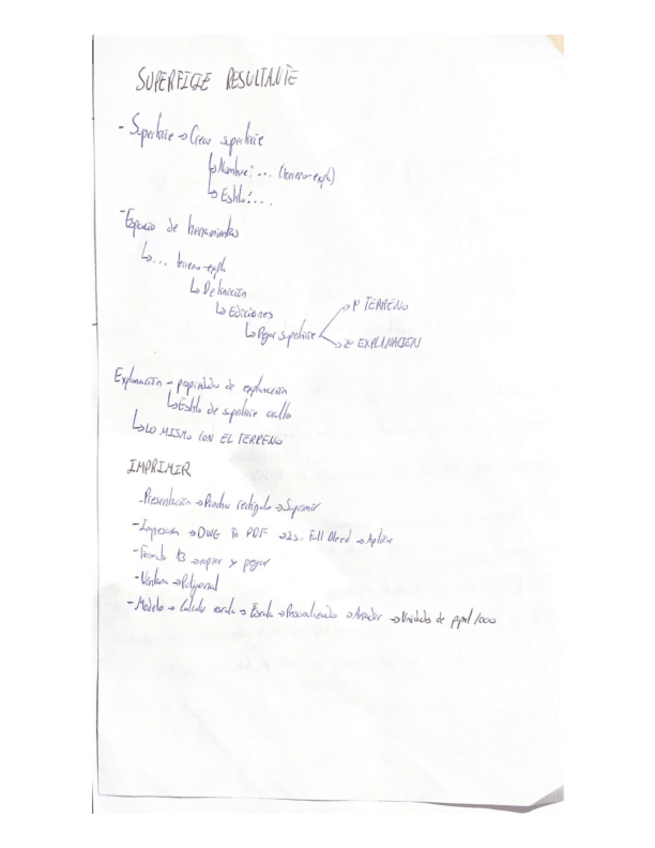 SUPERFICIE RESULTANTE
- Superficie → Crear superficie
↳ Nombre: ... (terreno-expl)
↳ Estilo: ...
- Espacio de herramientas
↳ ... terreno-expl
↳ Definición
↳ Ediciones
↳ Pegar superficie → 1º TERRENO
→ 2º EXPLANACIÓN
Explanación → propiedades de explanación
↳ Estilo de superficie oculto
↳ LO MISMO CON EL TERRENO
IMPRIMIR
- Presentación → Pinchar rectángulo → Suprimir
- Impresora → DWG To PDF → Full Bleed → Aplicar
- Formato A3 → copiar y pegar
- Ventana → Poligonal
- Modelo → Calcular escala → Escala → Personalizado → Añadir → Unidades de papel 1000